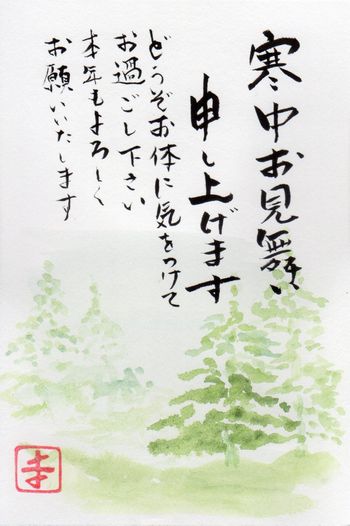 寒中お見舞い
申し上げます
どうぞお体に気をつけて
お過ごし下さい
本年もよろしく
お願いいたします